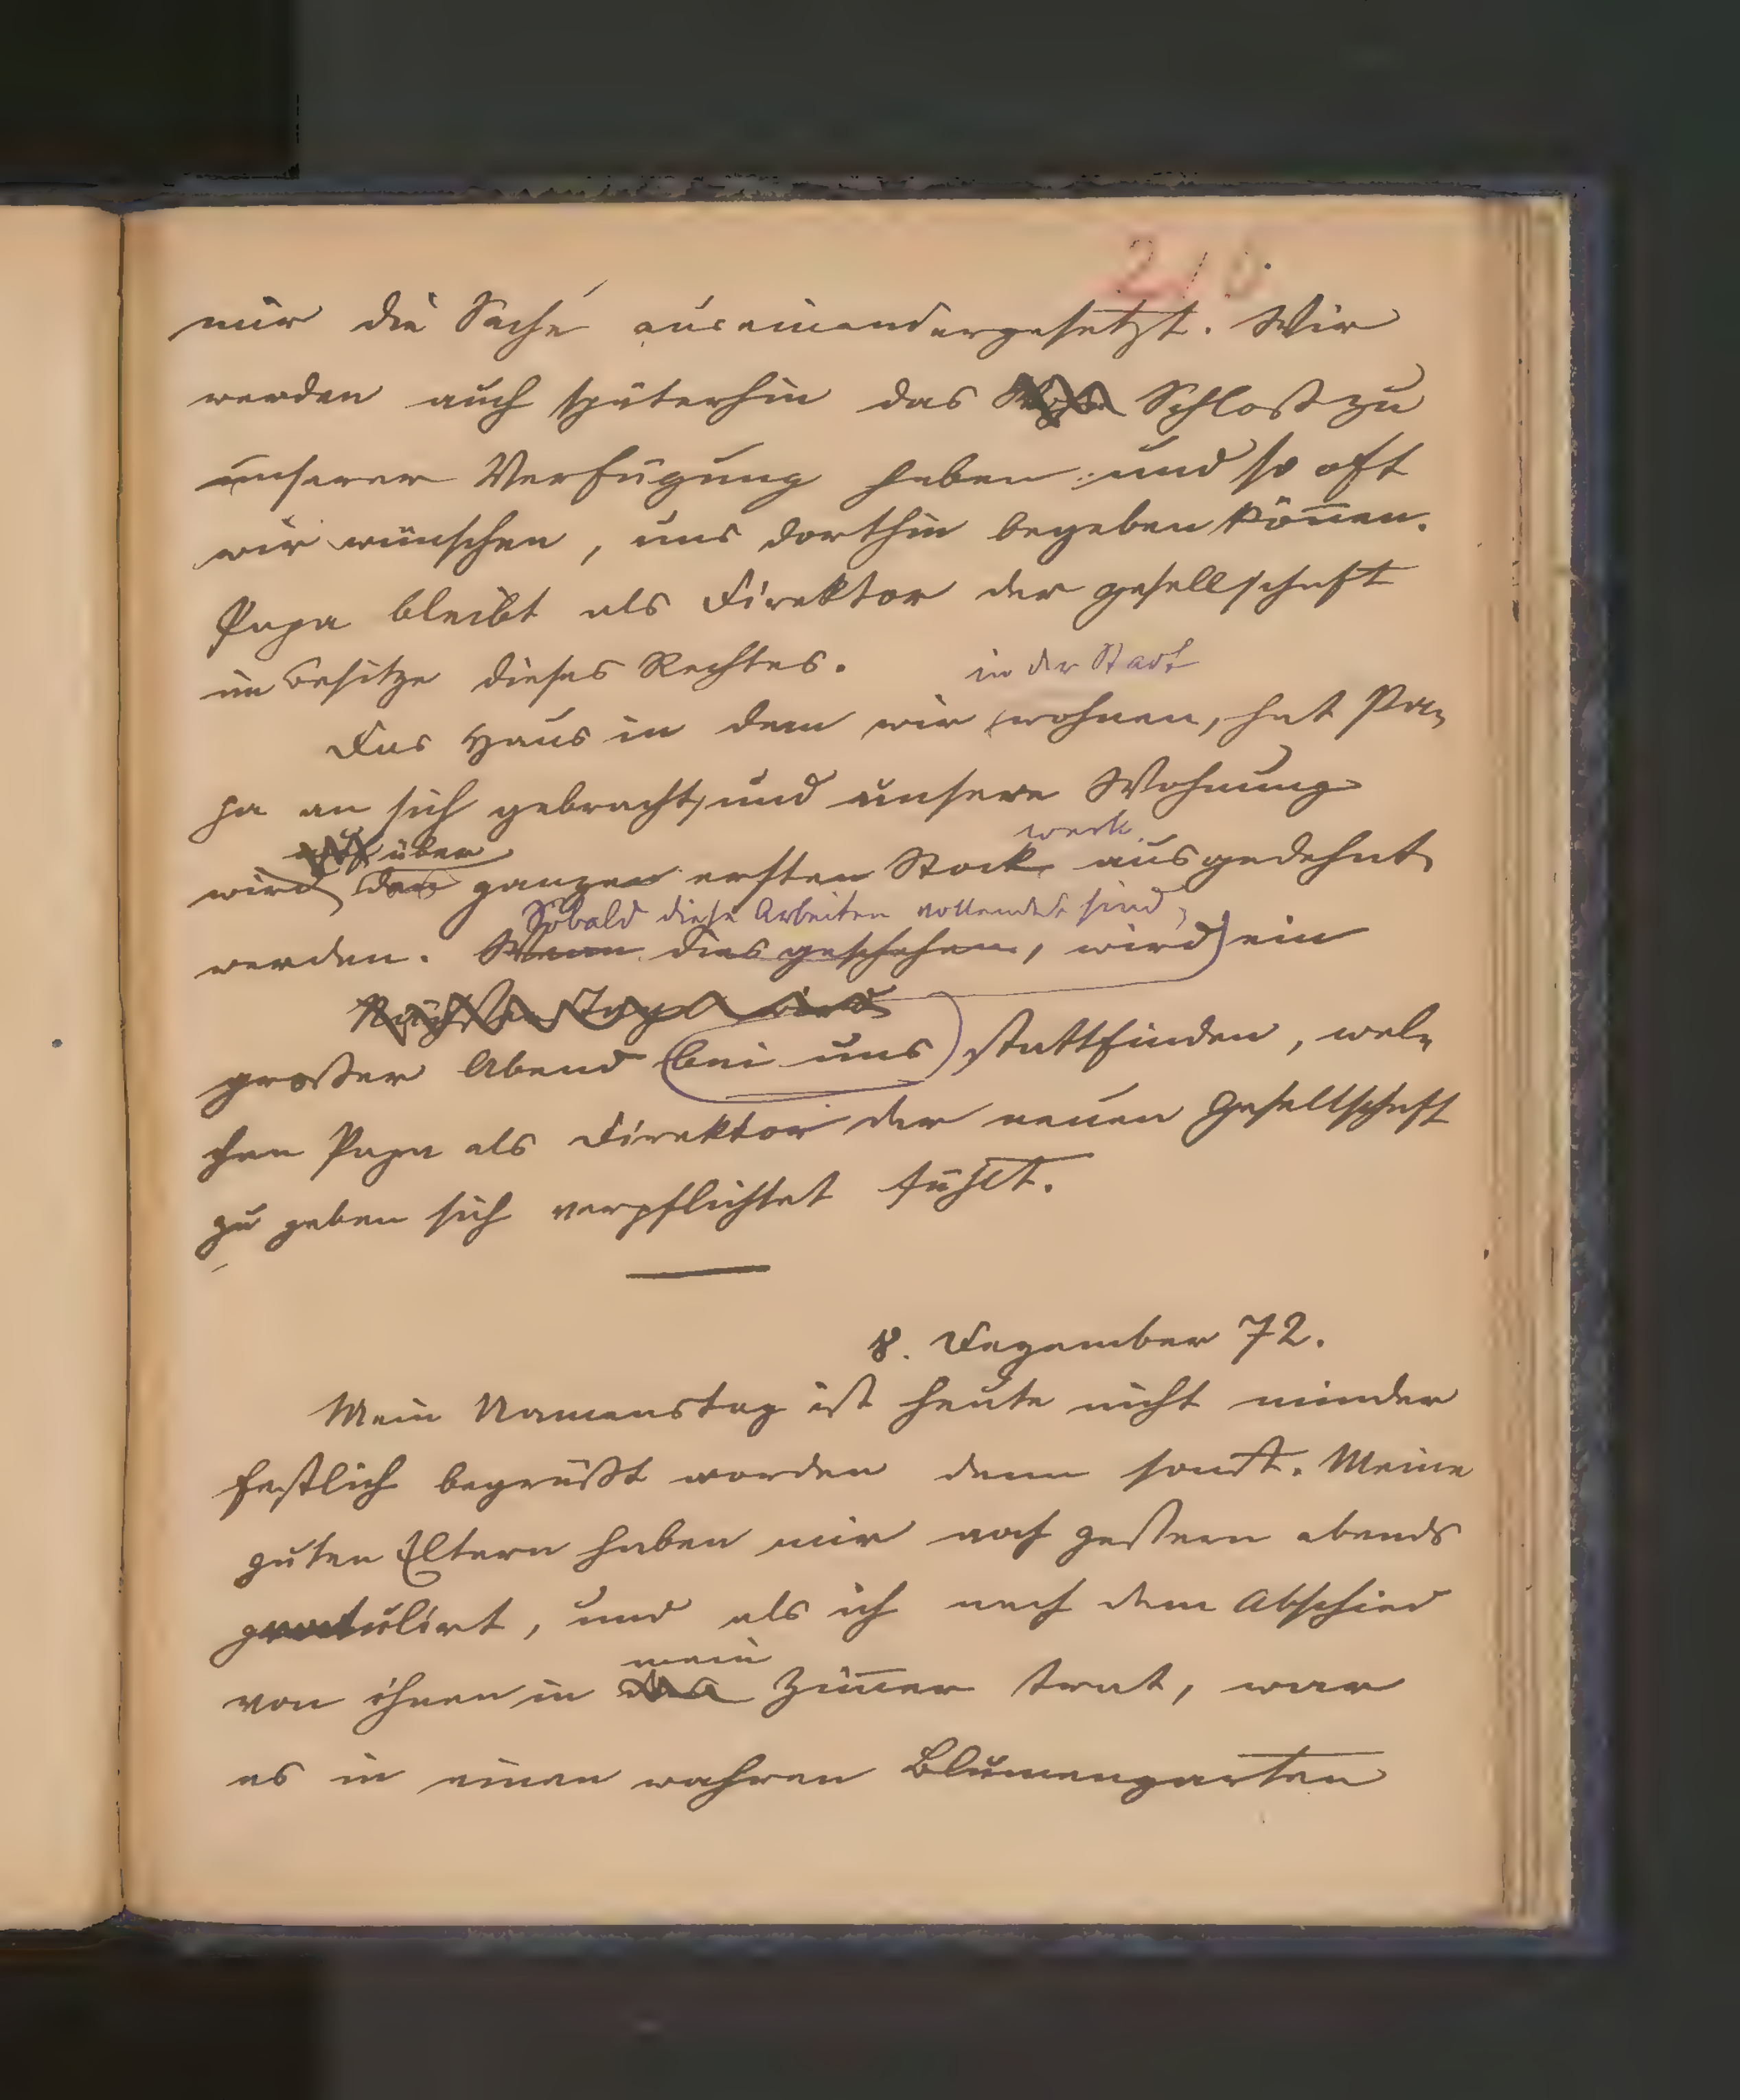 mir die Sache auseinandergesetzt. Wir
werden auch späterhin das Schloß zu
unserer Verfügung haben und so oft
wir wünschen, uns dorthin begeben können.
Papa bleibt als Direktor der Gesellschaft
im Besitze dieses Rechtes.
in der Stadt
Das Haus in dem wir wohnen, hat Pa-
pa an sich gebracht, und unsere Wohnung
über
werk
wird den ganzen ersten Stock ausgedehnt
Sobald diese Arbeiten vollendet sind,
werden. Wenn dies geschehen, wird ein
Nächster Tage wird
großer Abend bei uns stattfinden, wel-
chen Papa als Direktor der neuen Gesellschaft
zu geben sich verpflichtet fühlt.
8. Dezember 72.
Mein Namenstag ist heute nicht minder
festlich begrüßt worden denn sonst. Meine
guten Eltern haben mir noch gestern abends
gratulirt, und als ich nach dem Abschied
mein
von ihnen in Zimmer trat, war
es in einen wahren Blumengarten